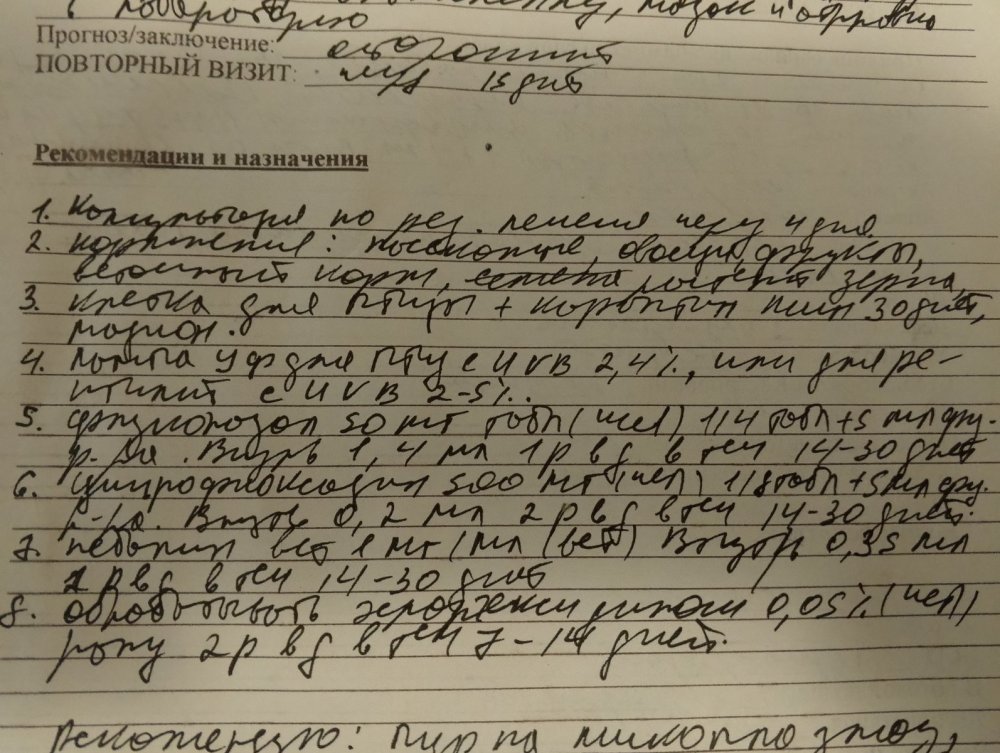 лабораторию
Прогноз/заключение: осторожный
ПОВТОРНЫЙ ВИЗИТ: через 15 дней
Рекомендации и назначения
1. Консультация по рез. лечения через 4 дня
2. кормления: насекомые, овощи, фрукты,
веточный корм, зерна,
3. клетка для птицы + карантин мин 30 дней,
моцион.
4. лампа УФ для птиц с UVB 2,4%, или для ре-
птилий с UVB 2-5%.
5. флуконазол 50 мг табл (чел) 1/4 табл + 5 мл физ.
р-ра. Внутрь 1,4 мл 1 р в д в теч 14-30 дней
6. ципрофлоксацин 500 мг (чел) 1/8 табл + 5 мл физ.
р-ра. Внутрь 0,2 мл 2 р в д в теч 14-30 дней.
7. вет 1 мг/мл (вет) Внутрь 0,35 мл
1 р в д в теч 14-30 дней
8. обрабатывать 0,05% (чел)
рану 2 р в д в теч 7-14 дней.
Рекомендую: